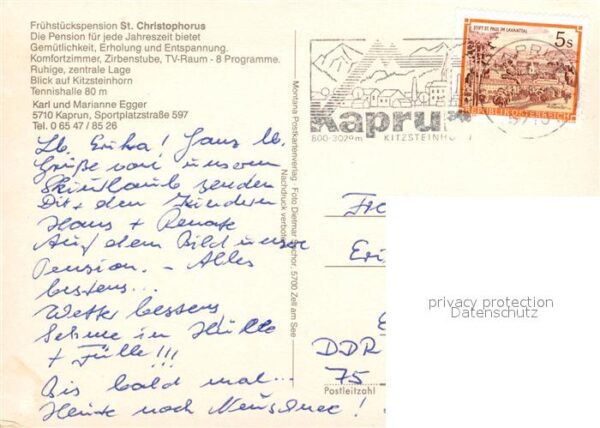 Frühstückspension St. Christophorus
Die Pension für jede Jahreszeit bietet
Gemütlichkeit, Erholung und Entspannung.
Komfortzimmer, Zirbenstube, TV-Raum - 8 Programme.
Ruhige, zentrale Lage
Blick auf Kitzsteinhorn
Tennishalle 80 m
Karl und Marianne Egger
5710 Kaprun, Sportplatzstraße 597
Tel. 0 65 47 / 85 26
Lb. Erika! Ganz lb.
Grüße von unserem
Skiurlaub senden
Dir + den Kindern
Hans + Renate
Auf dem Bild unsere
Pension. - Alles
bestens...
Wetter bestens
Schnee in Hülle
+ Fülle!!!
Bis bald mal...
Heute noch Neuschnee!
Montana Postkartenverlag · Foto Dietmar Sochor, 5700 Zell am See
Nachdruck verboten
Kaprun
800-3029m KITZSTEINHORN
STIFT ST. PAUL IM LAVANTTAL
5s
REPUBLIK ÖSTERREICH
Eri
DDR
75
Postleitzahl
privacy protection
Datenschutz